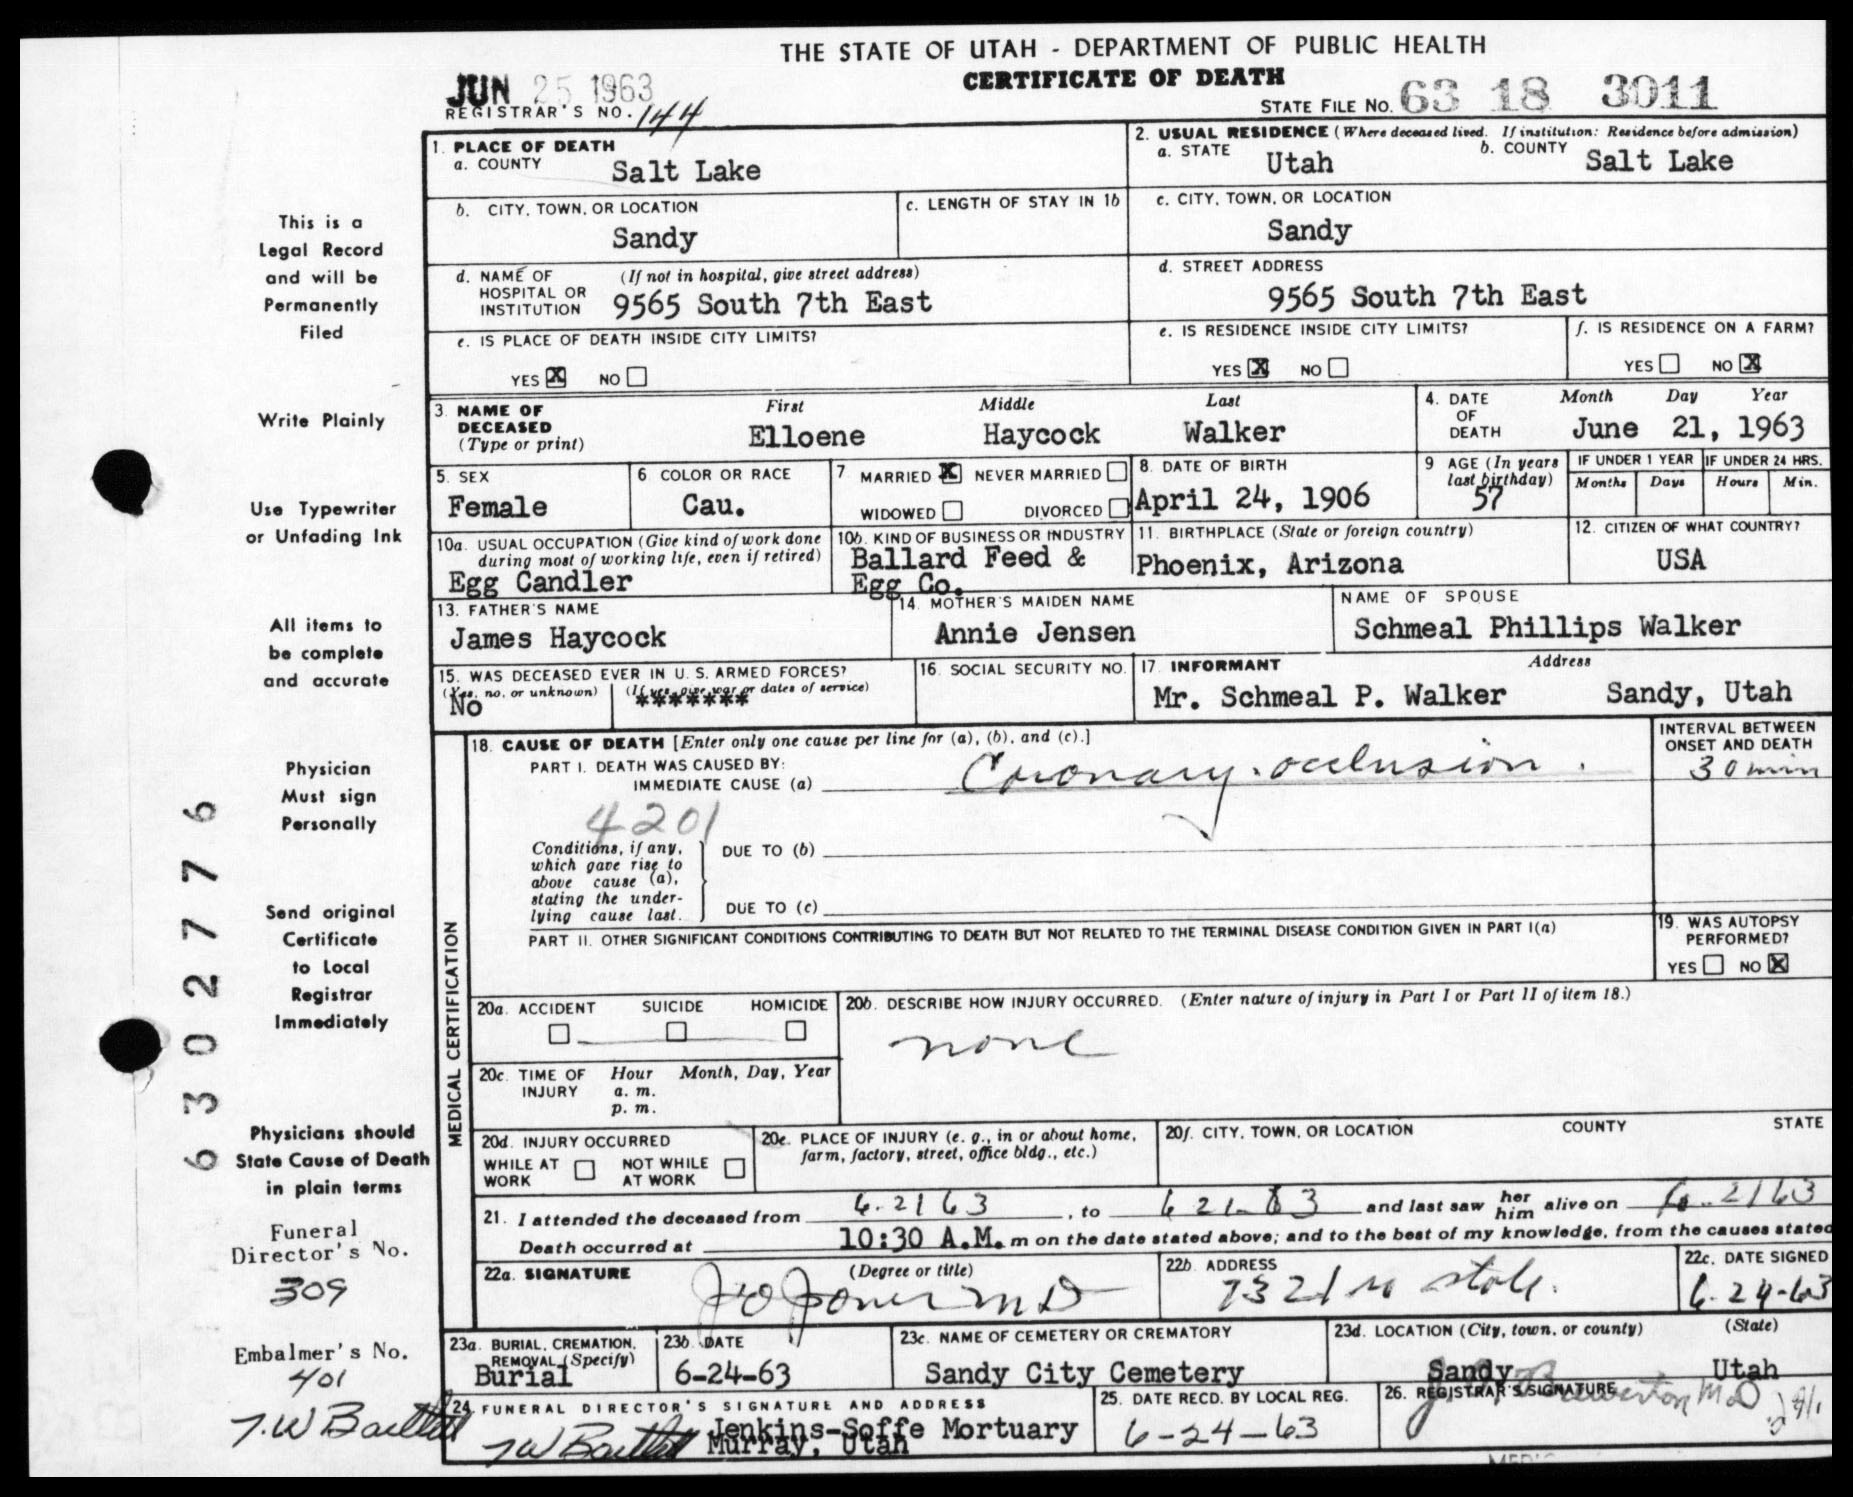 THE STATE OF UTAH - DEPARTMENT OF PUBLIC HEALTH
CERTIFICATE OF DEATH
JUN 25 1963
REGISTRAR'S NO. 144
STATE FILE NO. 63 18 3011
This is a
Legal Record
and will be
Permanently
Filed
Write Plainly
Use Typewriter
or Unfading Ink
All items to
be complete
and accurate
Physician
Must sign
Personally
Send original
Certificate
to Local
Registrar
Immediately
Physicians should
State Cause of Death
in plain terms
Funeral
Director's No.
309
Embalmer's No.
401
T.W Bartlett
6302776
1. PLACE OF DEATH
a. COUNTY Salt Lake
2. USUAL RESIDENCE (Where deceased lived. If institution: Residence before admission)
a. STATE Utah b. COUNTY Salt Lake
b. CITY, TOWN, OR LOCATION Sandy
c. LENGTH OF STAY IN 1b
c. CITY, TOWN, OR LOCATION Sandy
d. NAME OF HOSPITAL OR INSTITUTION (If not in hospital, give street address)
9565 South 7th East
d. STREET ADDRESS
9565 South 7th East
e. IS PLACE OF DEATH INSIDE CITY LIMITS?
YES X NO
e. IS RESIDENCE INSIDE CITY LIMITS?
YES X NO
f. IS RESIDENCE ON A FARM?
YES NO X
3. NAME OF DECEASED (Type or print)
First Middle Last
Elloene Haycock Walker
4. DATE OF DEATH Month Day Year
June 21, 1963
5. SEX
Female
6 COLOR OR RACE
Cau.
7 MARRIED X NEVER MARRIED
WIDOWED DIVORCED
8. DATE OF BIRTH
April 24, 1906
9 AGE (In years last birthday)
57
IF UNDER 1 YEAR IF UNDER 24 HRS.
Months Days Hours Min.
10a. USUAL OCCUPATION (Give kind of work done during most of working life, even if retired)
Egg Candler
10b. KIND OF BUSINESS OR INDUSTRY
Ballard Feed &
Egg Co.
11. BIRTHPLACE (State or foreign country)
Phoenix, Arizona
12. CITIZEN OF WHAT COUNTRY?
USA
13. FATHER'S NAME
James Haycock
14. MOTHER'S MAIDEN NAME
Annie Jensen
NAME OF SPOUSE
Schmeal Phillips Walker
15. WAS DECEASED EVER IN U. S. ARMED FORCES?
(Yes, no, or unknown) (If yes, give war or dates of service)
No *******
16. SOCIAL SECURITY NO.
17. INFORMANT Address
Mr. Schmeal P. Walker Sandy, Utah
MEDICAL CERTIFICATION
18. CAUSE OF DEATH [Enter only one cause per line for (a), (b), and (c).]
PART I. DEATH WAS CAUSED BY:
IMMEDIATE CAUSE (a) Coronary occlusion.
INTERVAL BETWEEN
ONSET AND DEATH
30 min
4201
Conditions, if any,
which gave rise to
above cause (a),
stating the under-
lying cause last.
DUE TO (b)
DUE TO (c)
PART II. OTHER SIGNIFICANT CONDITIONS CONTRIBUTING TO DEATH BUT NOT RELATED TO THE TERMINAL DISEASE CONDITION GIVEN IN PART I(a)
19. WAS AUTOPSY
PERFORMED?
YES NO X
20a. ACCIDENT SUICIDE HOMICIDE
20b. DESCRIBE HOW INJURY OCCURRED. (Enter nature of injury in Part I or Part II of item 18.)
none
20c. TIME OF INJURY Hour Month, Day, Year
a. m.
p. m.
20d. INJURY OCCURRED
WHILE AT WORK NOT WHILE AT WORK
20e. PLACE OF INJURY (e. g., in or about home,
farm, factory, street, office bldg., etc.)
20f. CITY, TOWN, OR LOCATION COUNTY STATE
21. I attended the deceased from 6-21 63, to 6 21-63 and last saw her him alive on 6-2163
Death occurred at 10:30 A.M. m on the date stated above; and to the best of my knowledge, from the causes stated
22a. SIGNATURE (Degree or title)
J O Jones MD
22b. ADDRESS
7321 So State.
22c. DATE SIGNED
6-24-63
23a. BURIAL, CREMATION,
REMOVAL (Specify)
Burial
23b. DATE
6-24-63
23c. NAME OF CEMETERY OR CREMATORY
Sandy City Cemetery
23d. LOCATION (City, town, or county) (State)
Sandy Utah
24. FUNERAL DIRECTOR'S SIGNATURE AND ADDRESS
TW Bartlett Jenkins-Soffe Mortuary
Murray, Utah
25. DATE RECD. BY LOCAL REG.
6-24-63
26. REGISTRAR'S SIGNATURE